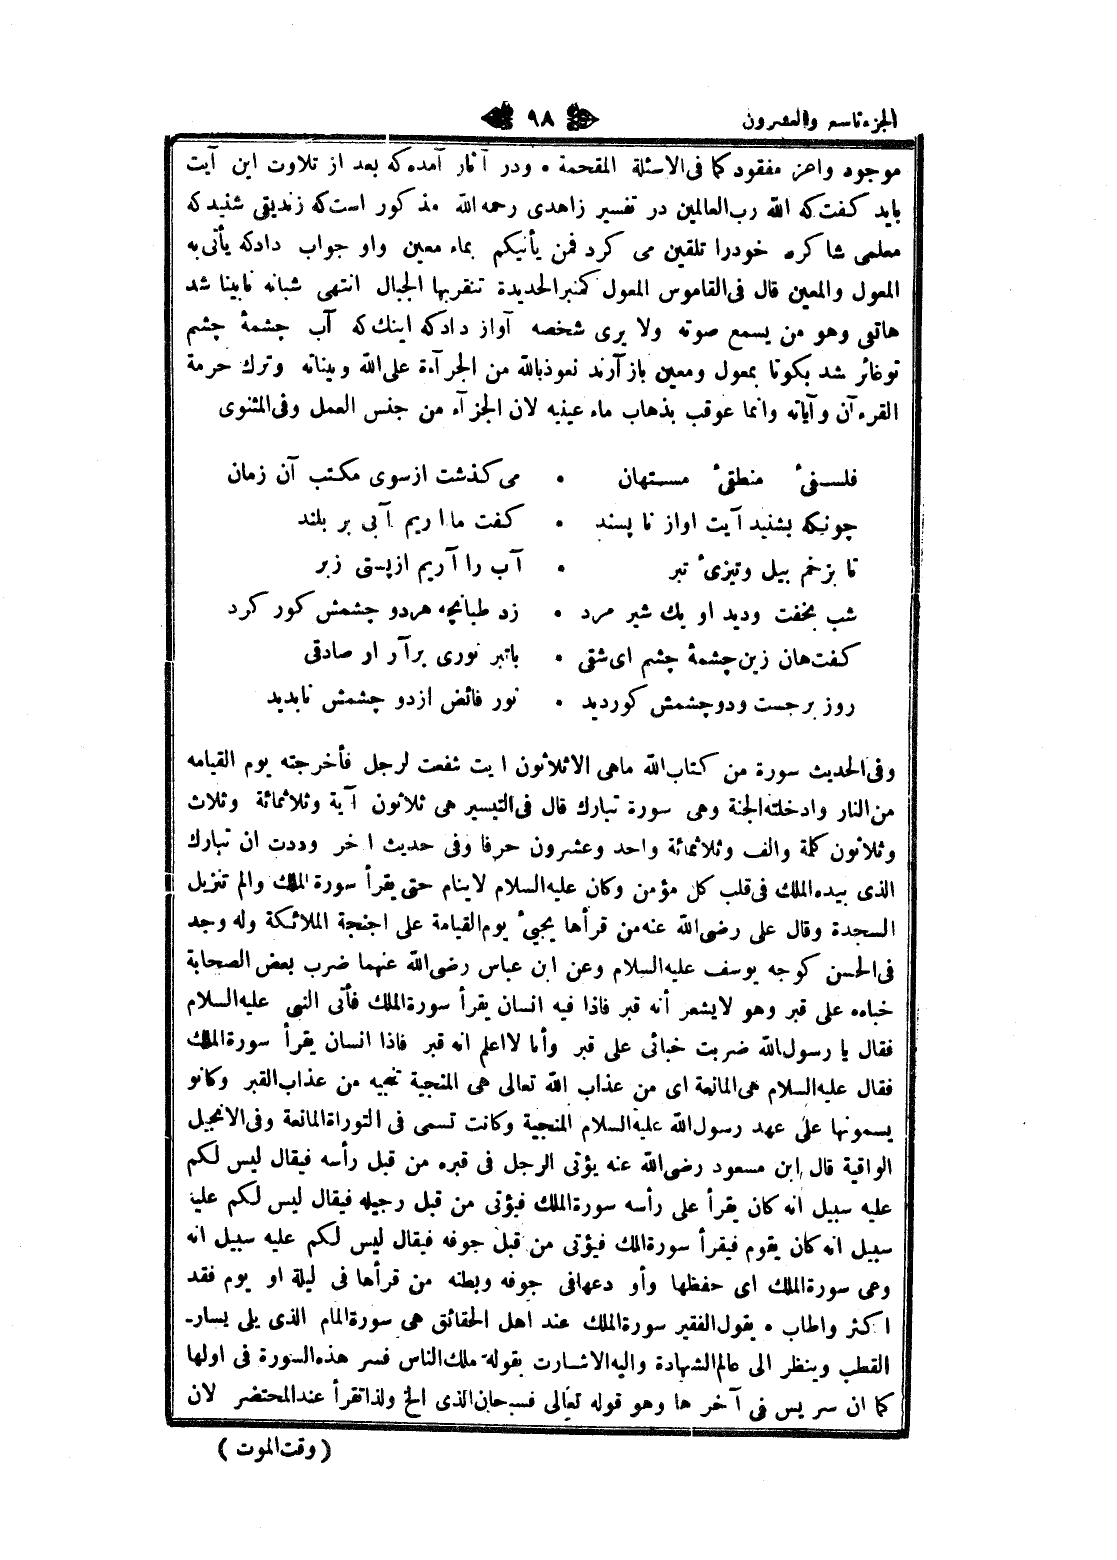 الجزء تاسع والعشرون
٩٨
موجود واعز مفقود كما فى الاسئلة المقحمة • ودر آثار آمده كه بعد از تلاوت اين آيت
بايد كفت كه الله رب العالمين در تفسير زاهدى رحمه الله مذكور است كه زنديقى شنيد كه
معلمى شاكره خودرا تلقين مى كرد فمن يأتيكم بماء معين واو جواب دادكه يأتى به
المعول والمعين قال فى القاموس المعول كمنبر الحديدة تنقربها الجبال انتهى شبانه نابينا شد
هاتفى وهو من يسمع صوته ولا يرى شخصه آواز دادكه اينك كه آب چشمهٔ چشم
توغائر شد بكوتا بمعول ومعين باز آرند نعوذ بالله من الجراءة على الله وبيناته وترك حرمة
القرءآن وآياته وانما عوقب بذهاب ماء عينيه لان الجزآء من جنس العمل وفى المثنوى
فلسفىء منطقىء مستهان • مى كذشت از سوى مكتب آن زمان
چونكه بشنيد آيت او از نا پسند • كفت ما اريم آبى بر بلند
تا بزخم بيل وتيزىء تبر • آب را آريم از پستى زبر
شب بخفت وديد او يك شير مرد • زد طبانچه هردو چشمش كور كرد
كفت هان زين چشمهٔ چشم اى شقى • باتبر نورى برآر ار صادقى
روز برجست ودو چشمش كورديد • نور فائض از دو چشمش نابديد
وفى الحديث سورة من كتاب الله ماهى الاثلاثون ايت شفعت لرجل فأخرجته يوم القيامه
من النار وادخلته الجنة وهى سورة تبارك قال فى التيسير هى ثلاثون آية وثلاثمائة وثلاث
وثلاثون كلمة والف وثلاثمائة واحد وعشرون حرفا وفى حديث اخر وددت ان تبارك
الذى بيده الملك فى قلب كل مؤمن وكان عليه السلام لاينام حتى يقرأ سورة الملك والم تنزيل
السجدة وقال على رضى الله عنه من قرأها يجيىء يوم القيامة على اجنجة الملائكة وله وجه
فى الحسن كوجه يوسف عليه السلام وعن ابن عباس رضى الله عنهما ضرب بعض الصحابة
خباءه على قبر وهو لايشعر أنه قبر فاذا فيه انسان يقرأ سورة الملك فأتى النبى عليه السلام
فقال يا رسول الله ضربت خبائى على قبر وأنا لا اعلم انه قبر فاذا انسان يقرأ سورة الملك
فقال عليه السلام هى المانعة اى من عذاب الله تعالى هى المنجية تنجيه من عذاب القبر وكانو
يسمونها على عهد رسول الله عليه السلام المنجية وكانت تسمى فى التوراة المانعة وفى الانجيل
الواقية قال ابن مسعود رضى الله عنه يؤتى الرجل فى قبره من قبل رأسه فيقال ليس لكم
عليه سبيل انه كان يقرأ على رأسه سورة الملك فيؤتى من قبل رجيله فيقال ليس لكم عليه
سبيل انه كان يقوم فيقرأ سورة الملك فيؤتى من قبل جوفه فيقال ليس لكم عليه سبيل انه
وعى سورة الملك اى حفظها وأو دعهافى جوفه وبطنه من قرأها فى ليلة او يوم فقد
اكثر واطاب • يقول الفقير سورة الملك عند اهل الحقائق هى سورة المام الذى يلى يسار
القطب وينظر الى عالم الشهادة واليه الاشارت بقوله ملك الناس فسر هذه السورة فى اولها
كما ان سر يس فى آخر ها وهو قوله تعالى فسبحان الذى الخ ولذا تقرأ عند المحتضر لان
( وقت الموت )